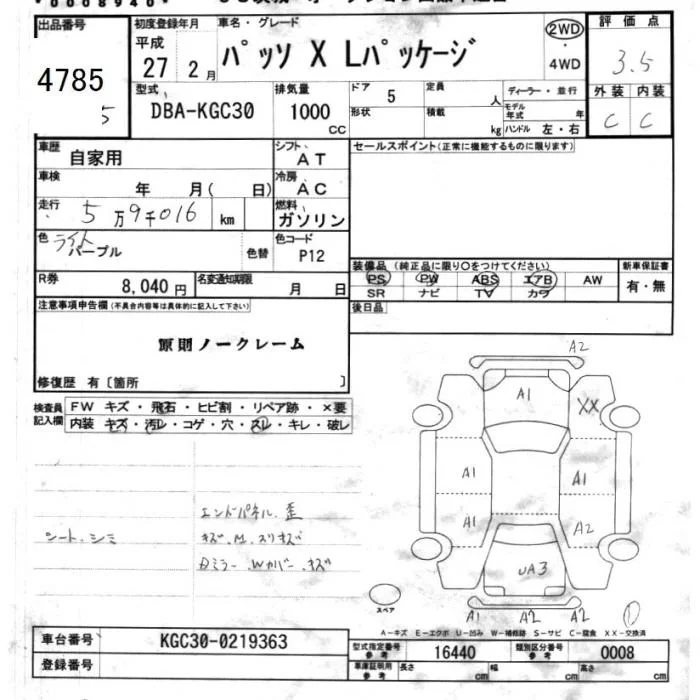 *0008940*
出品番号
4785
5
初度登録年月
平成
27 2 月
車名・グレード
パッソ X Lパッケージ
2WD
・
4WD
評価点
3.5
外装 内装
C C
型式
DBA-KGC30
排気量
1000
CC
ドア 5
形状
定員 人
積載 kg
ディーラー・並行
モデル年式 年
ハンドル 左・右
車歴
自家用
シフト
AT
車検
年 月( 日)
冷房
AC
走行
5万9千016 km
燃料
ガソリン
色
ライト
パープル
色替
色コード
P12
R券
8,040円
名変通知期限
月 日
セールスポイント(正常に機能するものに限ります)
装備品(純正品に限り○をつけてください)
PS PW ABS エアB AW
SR ナビ TV カワ
新車保証書
有・無
後日品
注意事項申告欄(不具合内容等は具体的に記入して下さい)
原則ノークレーム
修復歴 有〔箇所 〕
検査員
記入欄
FW キズ・飛石・ヒビ割・リペア跡・×要
内装 キズ・汚レ・コゲ・穴・スレ・キレ・破レ
シート.シミ
エンドパネル.歪
キズ.M.スリキズ
Dミラー.Wカバー.キズ
A2
A1
XX
A1
A1
A1
A2
UA3
スペア
A1 A2 A2
A-キズ E-エクボ U-凹み W-補修跡 S-サビ C-腐食 XX-交換済
車台番号
KGC30-0219363
登録番号
型式指定番号
参考
16440
類別区分番号
参考
0008
車庫証明用
参考
長さ cm 幅 cm 高さ cm